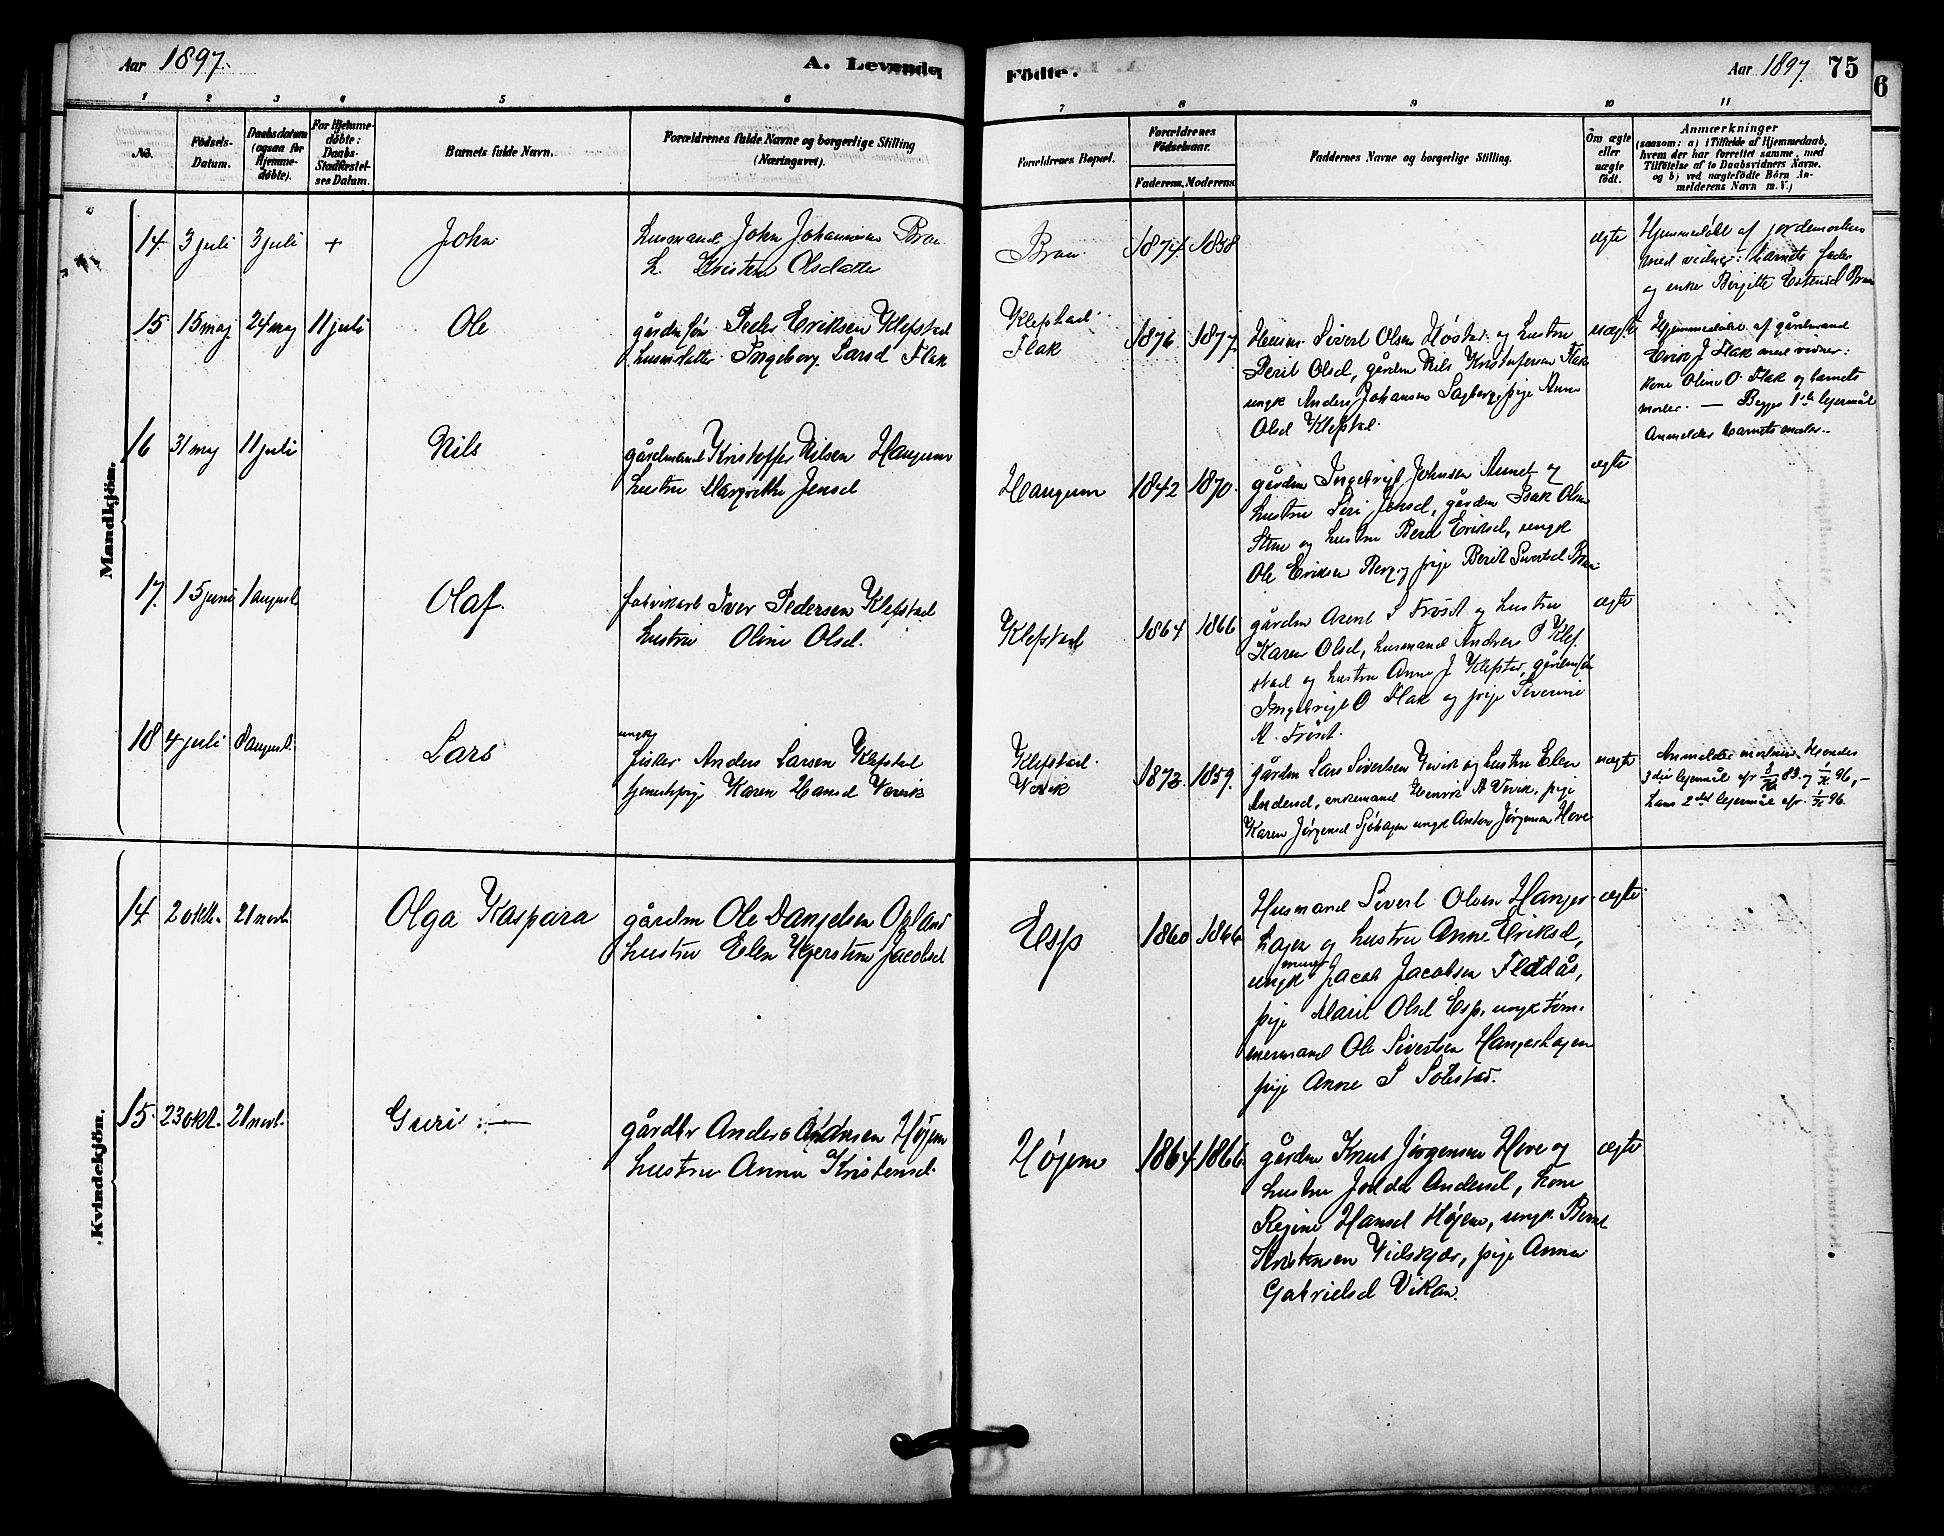 Aar 1897.
A. Levende
Födte.
Aar 1897. 75
6
1 2 3 4 5 6 7 8 9 10 11
No.
Födsels-
Datum.
Daabsdatum
(ogsaa for
Hjemme-
døbte).
For Hjemme-
døbte:
Daabs-
Stadfæstel-
ses Datum.
Barnets fulde Navn.
Forældrenes fulde Navne og borgerlige Stilling
(Næringsvei).
Forældrenes Bopæl.
Forældrenes
Födselsaar.
Faderens. Moderens.
Faddernes Navne og borgerlige Stilling.
Om ægte
eller
uægte
födt.
Anmærkninger
(saasom: a) i Tilfælde af Hjemmedaab,
hvem der har forrettet samme, med
Tilföielse af to Daabsvidners Navne,
og b) ved uægtefödte Börn An-
melderens Navn m. V.)
Mandkjön.
14 3 juli 3 juli + John
husmand John Johannesen Bran
h. Kristen Olsdatter
Bran 1874 1858
ægte
Hjemmedøbt af jordemoderen
med vidner: barnets fader
og enke Birgitte Estensd Bran
15 15 maj 24 maj 11 juli Ole
gårdm søn Peder Eriksen Klefstad
husmdatter Ingeborg Larsd Flak
Klefstad
Flak
1876 1877
Husm. Sivert Olsen Høstad og hustru
Berit Olsd, gårdm Nils Kristofersen Flak
ungk Anders Johansen Sagberg, pige Anne
Olsd Klefstad.
uægte
Hjemmedøbt af gårdmand
Erik J Flak med vidner:
kone Oline O. Flak og barnets
moder. — Begges 1ste lejermål
Anmelder barnets moder.
16 31 maj 11 juli Nils
gårdmand Kristoffer Nilsen Haugum
hustru Margrethe Jensd
Haugum 1842 1870.
gårdm Ingebrigt Johnsen Aunet og
hustru Siri Jensd, gårdm Isak Olsen
Stene og hustru Berit Eriksd, ungk
Ole Eriksen Berg og pige Berit Sivertsd Bran
ægte
17. 15 juni 1 august Olaf.
fabrikarb Iver Pedersen Klefstad
hustru Oline Olsd.
Klefstad 1864 1866
gårdm Arent S Frøset og hustru
Karen Olsd, husmand Andreas P Klef-
stad og hustru Anne J Klefstad, gårdmsøn
Ingebrigt O Flak og pige Severine
A. Frøset.
ægte
18 4 juli 8 august. Lars
ungk
fisker Anders Larsen Klefstad
tjenestepige Karen Hansd Vevik
Klefstad
Vevik
1873 1859.
gårdm Lars Sivertsen Gevik og hustru Elen
Andersd, enkemand Henrik A Vevik, pige
Karen Jørgensd Sjøhagen ungk Anders Jørgensen Hove
uægte
Anmelder moderen. Hendes
3die lejermål efr 83 og 96, -
hans 2det lejermål efr. 96.
Kvindekjön.
14 2 oktr. 21 novbr. Olga Kaspara
gårdm Ole Danjelsen Opland
hustru Elen Kjerstine Jacobsd
Esp 1860 1866
Husmand Sivert Olsen Hanger-
hagen og hustru Anne Eriksd,
ungk murer Jacob Jacobsen Flddås,
pige Marit Olsd Esp, ungk tøm-
mermand Ole Sivertsen Hangerhagen
pige Anne S Solstad.
ægte
15. 23 okt. 21 novbr. Guri
gårdbr Anders Andersen Højem
hustru Anna Kristensd.
Højem 1864 1866
gårdm Knut Jørgensen Hove og
hustru Andersd, kone
Regine Hansd Højem, ungk Bernt
Kristensen Vidskjær, pige Anna
Gabrielsd Vikan.
ægte